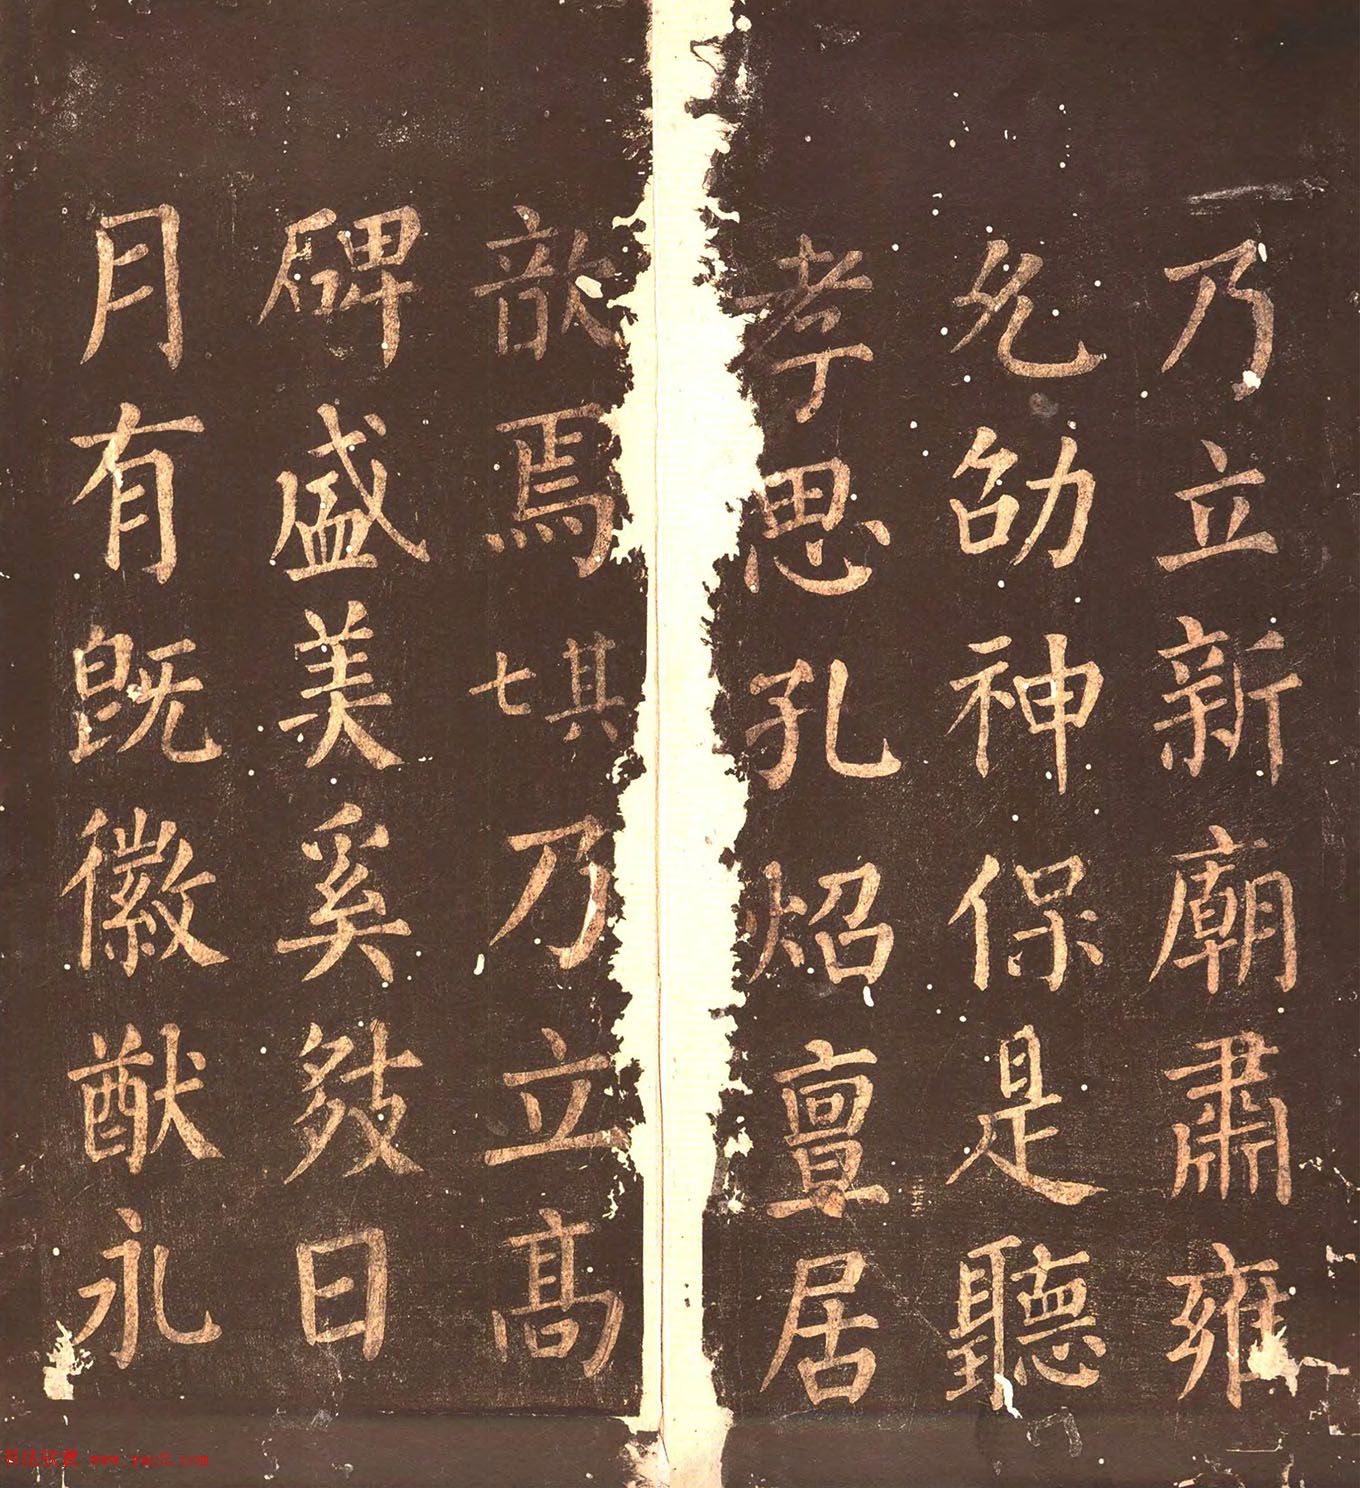 乃立新廟肅雍
允劭神保是聽
孝思孔焰亶居
歆焉其七乃立高
碑盛美奚敍日
月有既徽猷永
书法欣赏 www.yac8.com